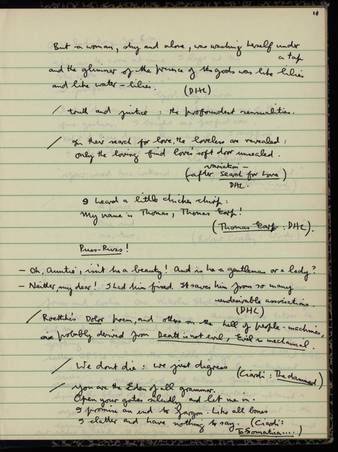 18
But a woman, shy and alone, was washing herself under
a tap
and the glimmer of the presence of the gods was like lilies
and like water-lilies.
(DHL)
/ truth and justice, the profoundest sensualities.
/ In their search for love, the loveless are revealed;
only the loving find love's soft door unsealed.
variation -
(after Search for Love)
DHL.
I heard a little chicken chirp:
My name is Thomas, Thomas Earp!
(Thomas Earp: DHL).
Puss-Puss!
- Oh, Auntie, isn't he a beauty! And is he a gentleman or a lady?
- Neither, my dear! I had him fixed. It saves him from so many
undesirable associations.
(DHL)
/ Roethke's Dolor poem, and others on the hell of people-machines,
are probably derived from Death is not evil, Evil is mechanical.
/ We dont die: we just digress
(Ciardi: The damned)
/ You are the Eden of all grammar.
Open your gates and let me in.
I promise an end to jargon. Like all bones
I clatter and have nothing to say. (Ciardi:
To Somatia....)